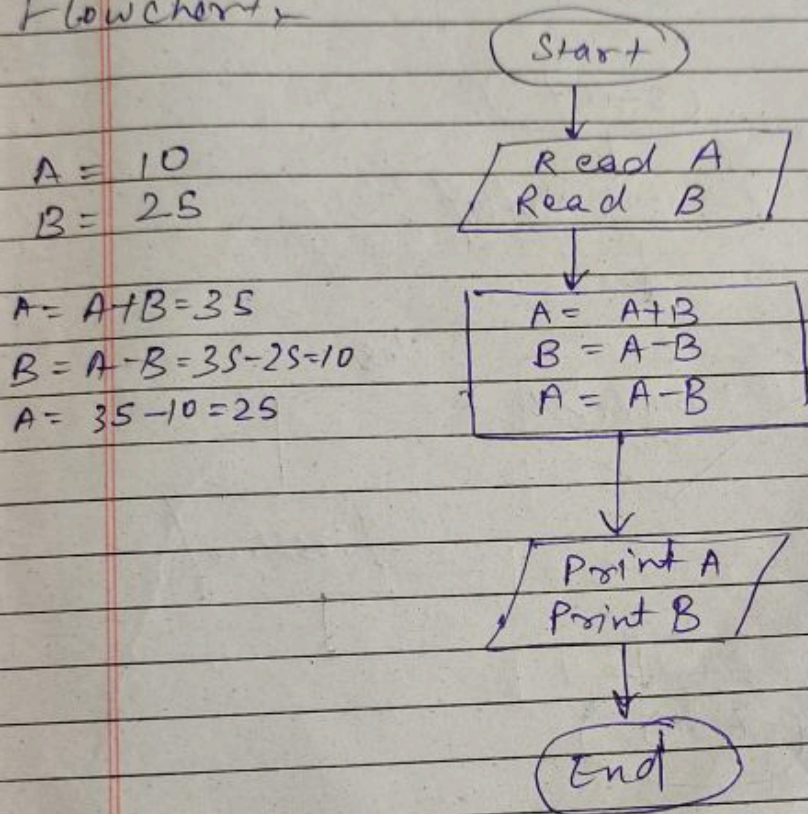 Flowchart,
A = 10
B = 25
A = A+B=35
B = A-B=35-25=10
A = 35-10=25
Start
Read A
Read B
A = A+B
B = A-B
A = A-B
Print A
Print B
End